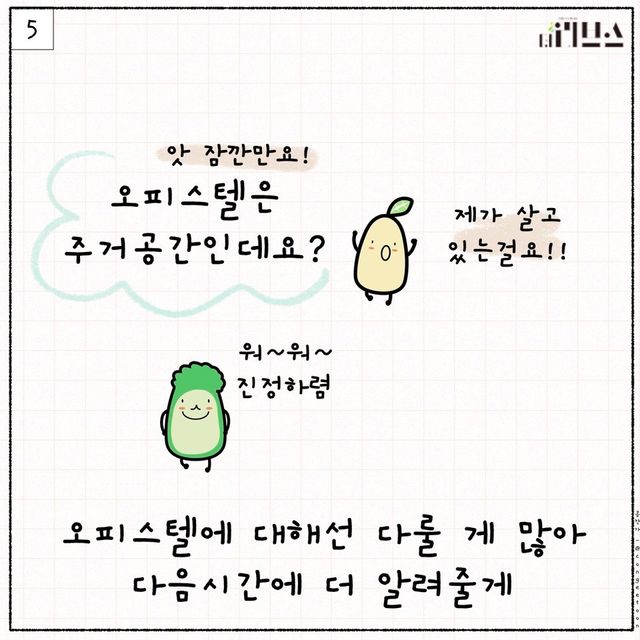 5
앗 잠깐만요!
오피스텔은
주거공간인데요?
제가 살고
있는걸요!!
워~워~
진정하렴
오피스텔에 대해선 다룰 게 많아
다음시간에 더 알려줄게